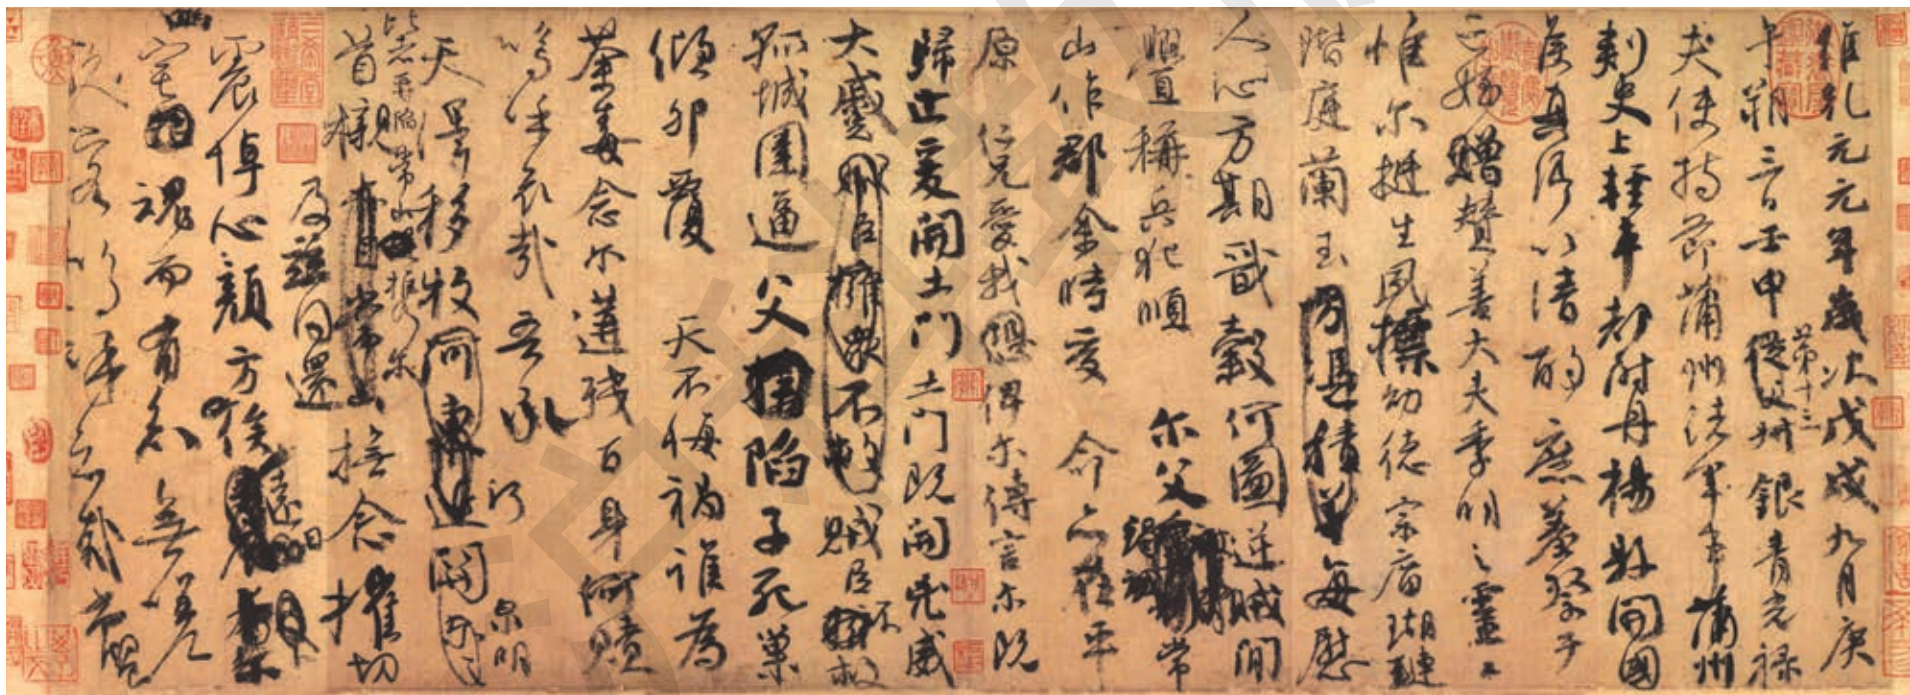 維乾元元年歲次戊戌九月庚
午朔三日壬申第十三從父叔銀青光祿
夫使持節蒲州諸軍事蒲州
刺史上輕車都尉丹楊縣開國
侯真卿以清酌庶羞祭于
亡姪贈贊善大夫季明之靈曰
惟爾挺生夙標幼德宗廟瑚璉
階庭蘭玉方憑積善每慰
人心方期戩穀何圖逆賊閒
釁稱兵犯順爾父竭誠常
山作郡余時受命亦在平
原仁兄愛我恐俾爾傳言爾既
歸止爰開土門土門既開凶威
大蹙賊臣擁眾不救賊臣不救
孤城圍逼父陷子死巢
傾卵覆天不悔禍誰為
荼毒念爾遘殘百身何贖
嗚呼哀哉吾承
天澤移牧河東近河關泉明
比者再陷常山攜爾
首櫬亦自常山撫念摧切
及茲同還
震悼心顏方俟遠日
宅魂而有知無嗟
久客嗚呼哀哉尚饗